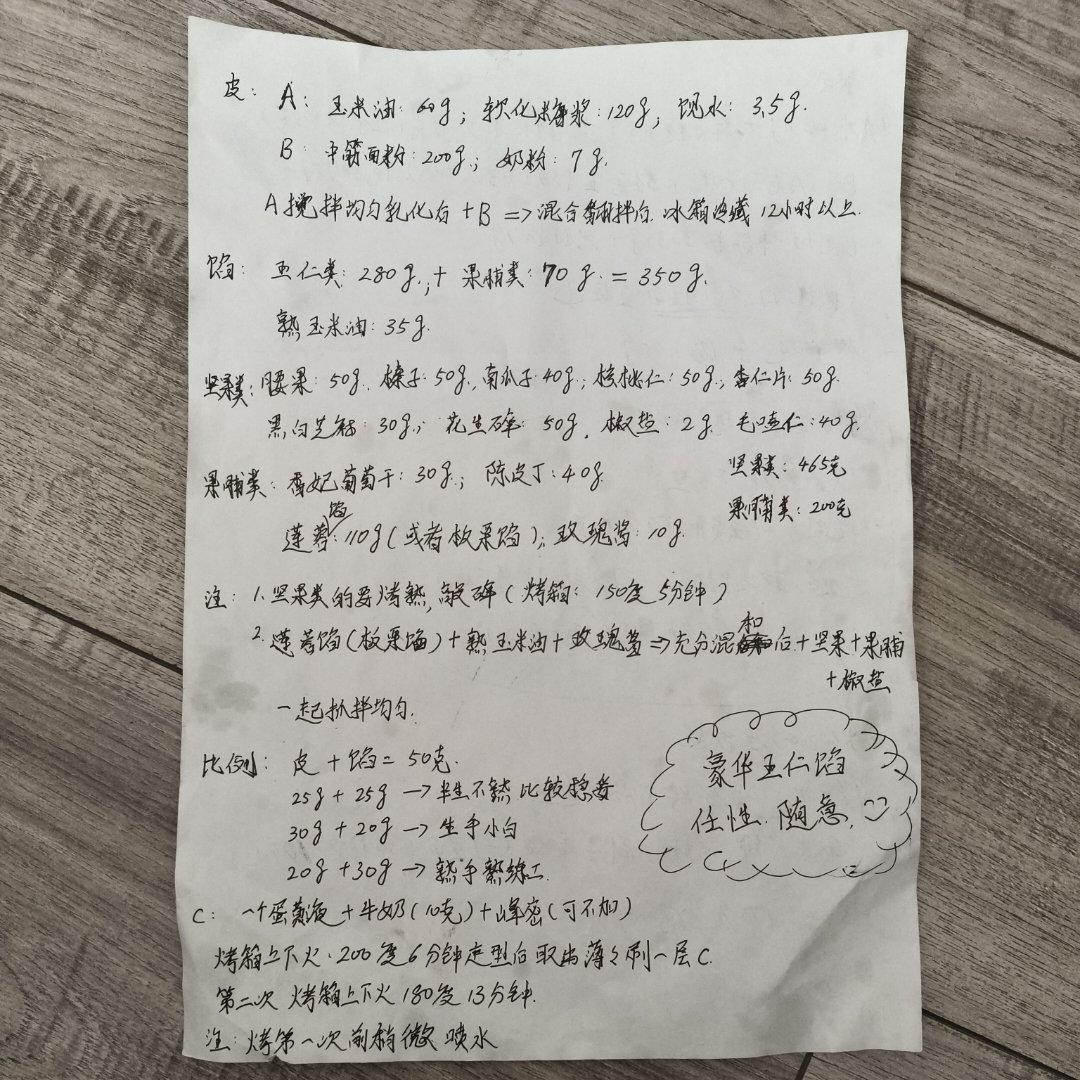 皮: A: 玉米油: 60g; 软化糖浆: 120g; 枧水: 3.5g.
B: 中筋面粉: 200g.; 奶粉: 7g.
A搅拌均匀乳化后+B => 混合翻拌后. 冰箱冷藏 12小时以上.
馅: 五仁类: 280g.,+ 果脯类: 70g. = 350g.
熟玉米油: 35g.
坚果类: 腰果: 50g. 榛子: 50g, 南瓜子: 40g.; 核桃仁: 50g.; 杏仁片: 50g.
黑白芝麻: 30g.; 花生碎: 50g, 椒盐: 2g. 毛嗑仁: 40g.
坚果类: 465克
果脯类: 香妃葡萄干: 30g.; 陈皮丁: 40g.
果脯类: 200克
莲蓉馅: 110g (或者板栗馅); 玫瑰酱: 10g.
注: 1. 坚果类的要烤熟, 敲碎 (烤箱: 150度 5分钟)
2. 莲蓉馅(板栗馅)+熟玉米油+玫瑰酱 => 充分混和后.+坚果+果脯
+椒盐
一起抓拌均匀.
比例: 皮 + 馅 = 50克.
25g + 25g → 半生不熟 比较稳妥
30g + 20g → 生手小白
20g + 30g → 熟手熟练工.
豪华五仁馅
任性. 随意.
C: 一个蛋黄液 + 牛奶 (10克) + 峰密 (可不加)
烤箱上下火. 200度6分钟定型后取出薄々刷一层C.
第二次 烤箱上下火 180度 13分钟.
注: 烤第一次前稍微喷水